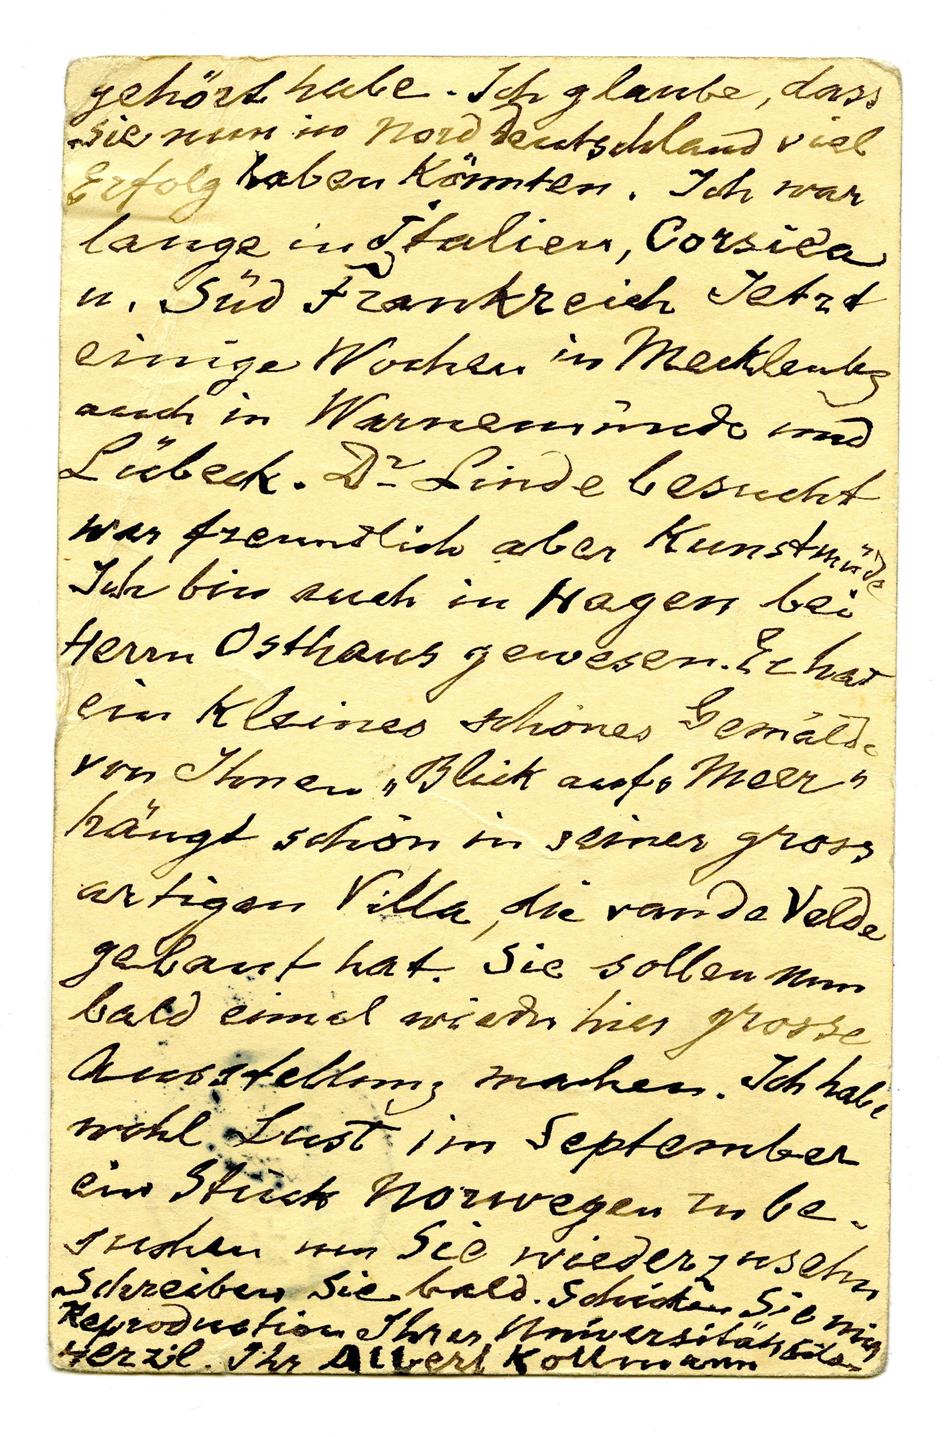 gehört habe. Ich glaube, dass
Sie nun in Nord Deutschland viel
Erfolg haben Könnten. Ich war
lange in Italien, Corsica
u. Süd Frankreich Jetzt
einige Wochen in Mecklenbg
auch in Warnemünde und
Lübeck. Dr Linde besucht
war freundlich aber Kunstmüde
Ich bin auch in Hagen bei
Herrn Osthaus gewesen. Er hat
ein Kleines schönes Gemälde
von Ihnen „Blick aufs Meer"
hängt schön in seiner gross
artigen Villa, die van de Velde
gebaut hat. Sie sollen nun
bald einmal wieder hier grosse
Ausstellung machen. Ich habe
wohl Lust im September
ein Stück Norwegen zu be-
suchen um Sie wiederzusehn
Schreiben Sie bald. Schicken Sie mir
Reproduction Ihrer Universitäts
Herzl. Ihr Albert Kollmann